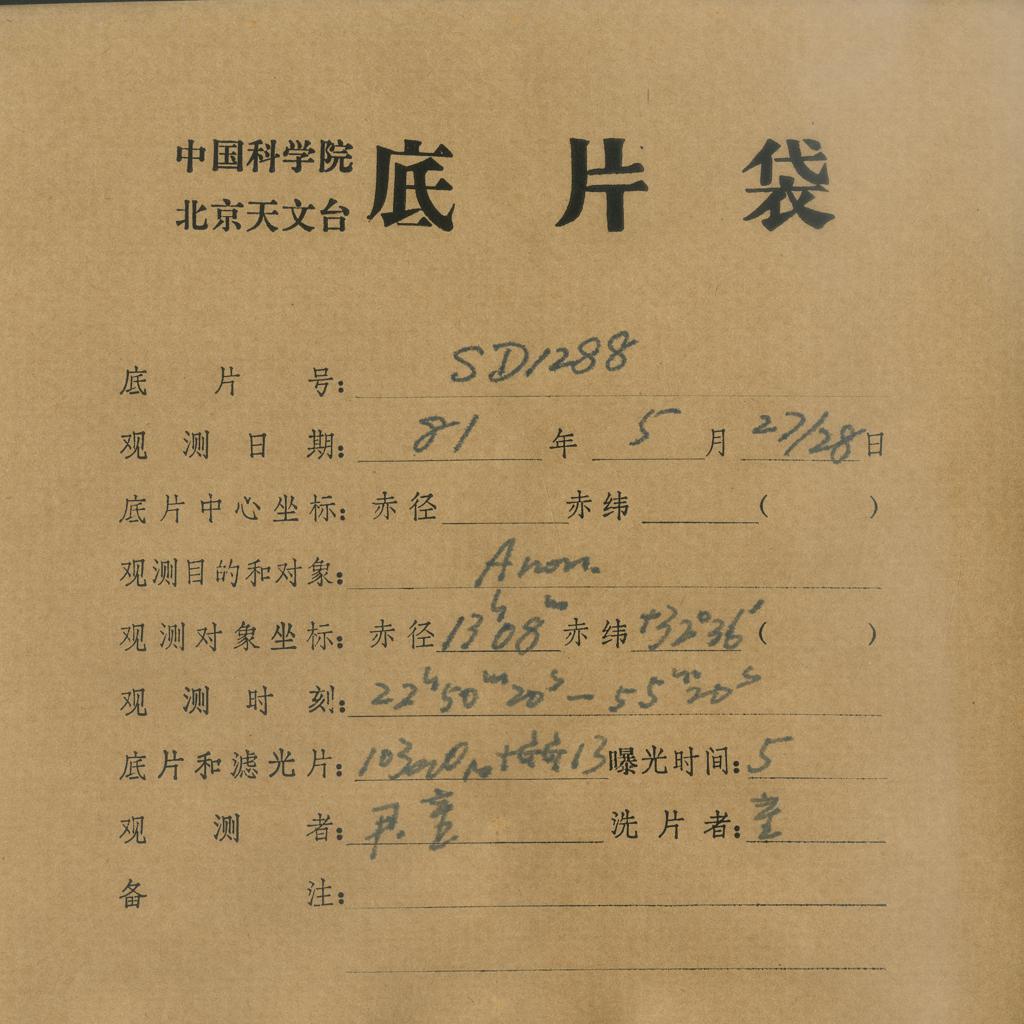 中国科学院
北京天文台
底片袋
底片号: SD1288
观测日期: 81 年 5 月 27/28 日
底片中心坐标: 赤径 赤纬 ( )
观测目的和对象: Anon.
观测对象坐标: 赤径 13h08m 赤纬 +32°36′ ( )
观测时刻: 22h50m20s — 55m20s
底片和滤光片: 13 曝光时间: 5
观测者: 洗片者:
备注: